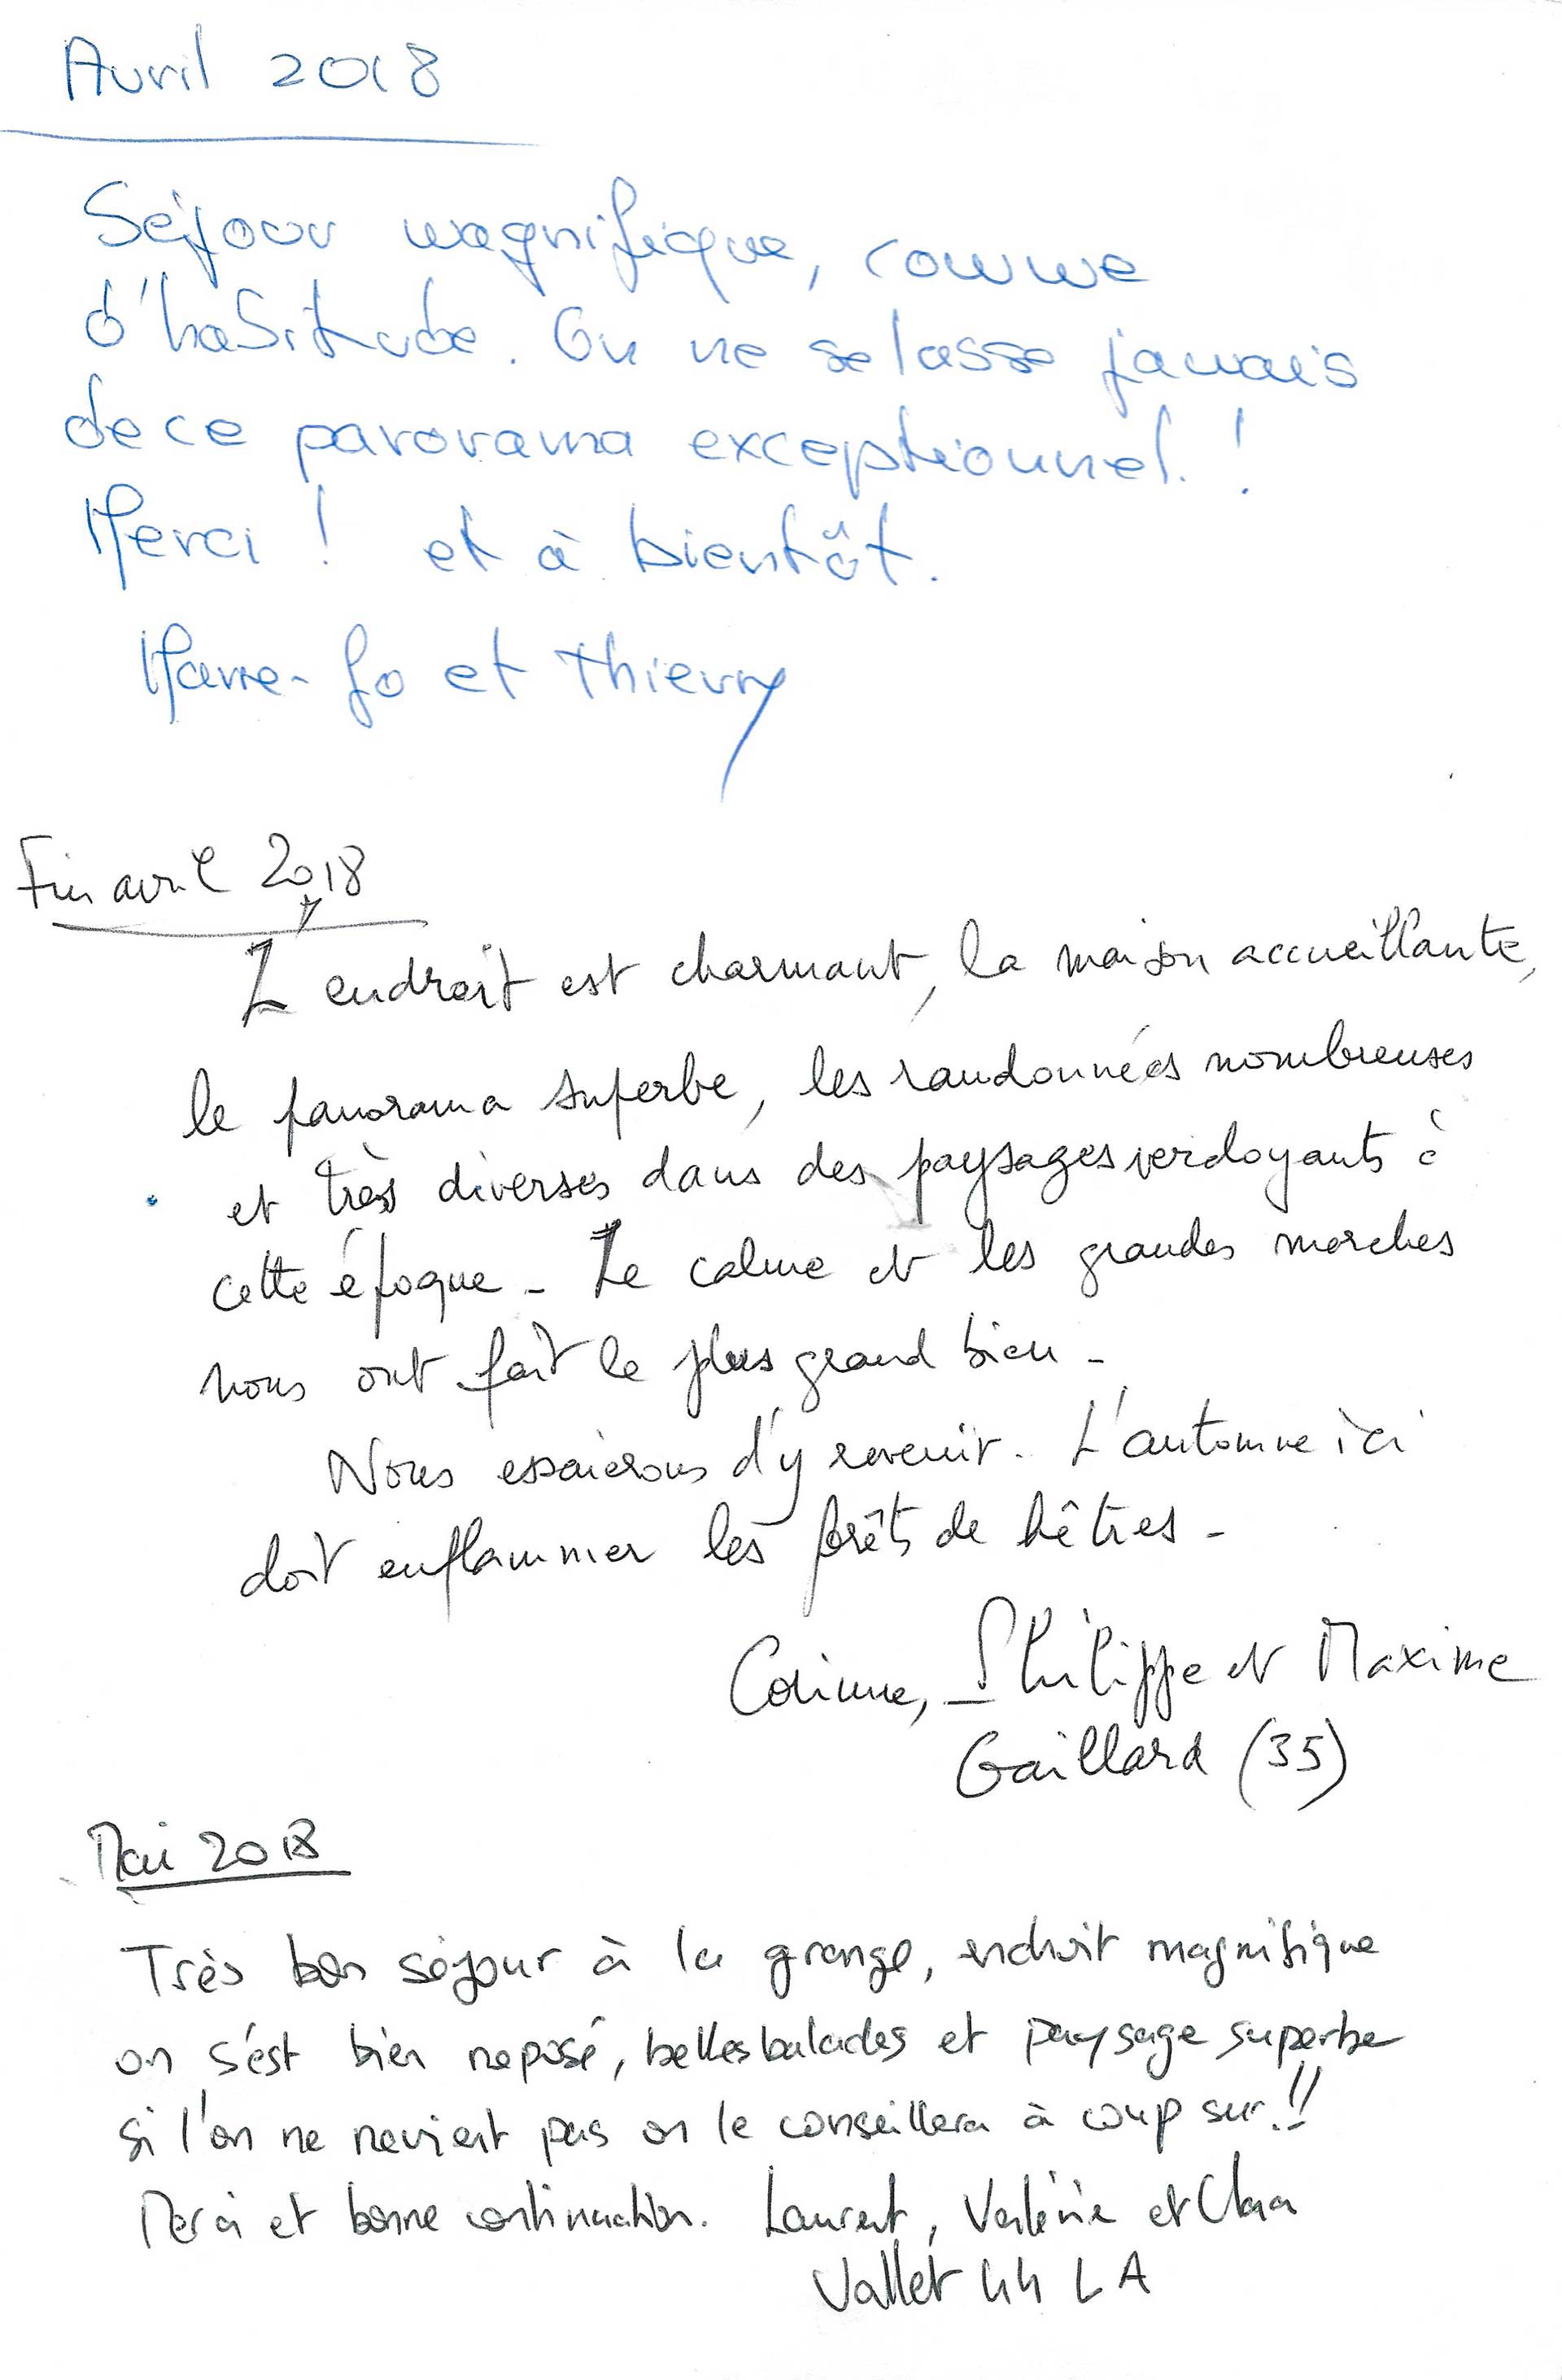 Avril 2018
Séjour magnifique, comme
d'habitude. On ne se lasse jamais
de ce panorama exceptionnel !
Merci ! et à bientôt.
Marie-Jo et Thierry
Fin avril 2018
L'endroit est charmant, la maison accueillante,
le panorama superbe, les randonnées nombreuses
et très diverses dans des paysages verdoyants à
cette époque - Le calme et les grandes marches
nous ont fait le plus grand bien -
Nous essaierons d'y revenir. L'automne ici
doit enflammer les forêts de hêtres -
Corinne, Philippe et Maxime
Gaillard (35)
Mai 2018
Très bon séjour à la grange, endroit magnifique
on s'est bien reposé, belles balades et paysage superbe
si l'on ne revient pas on le conseillera à coup sur !!
Merci et bonne continuation. Laurent, Valérie et Clara
Vallet 44 LA